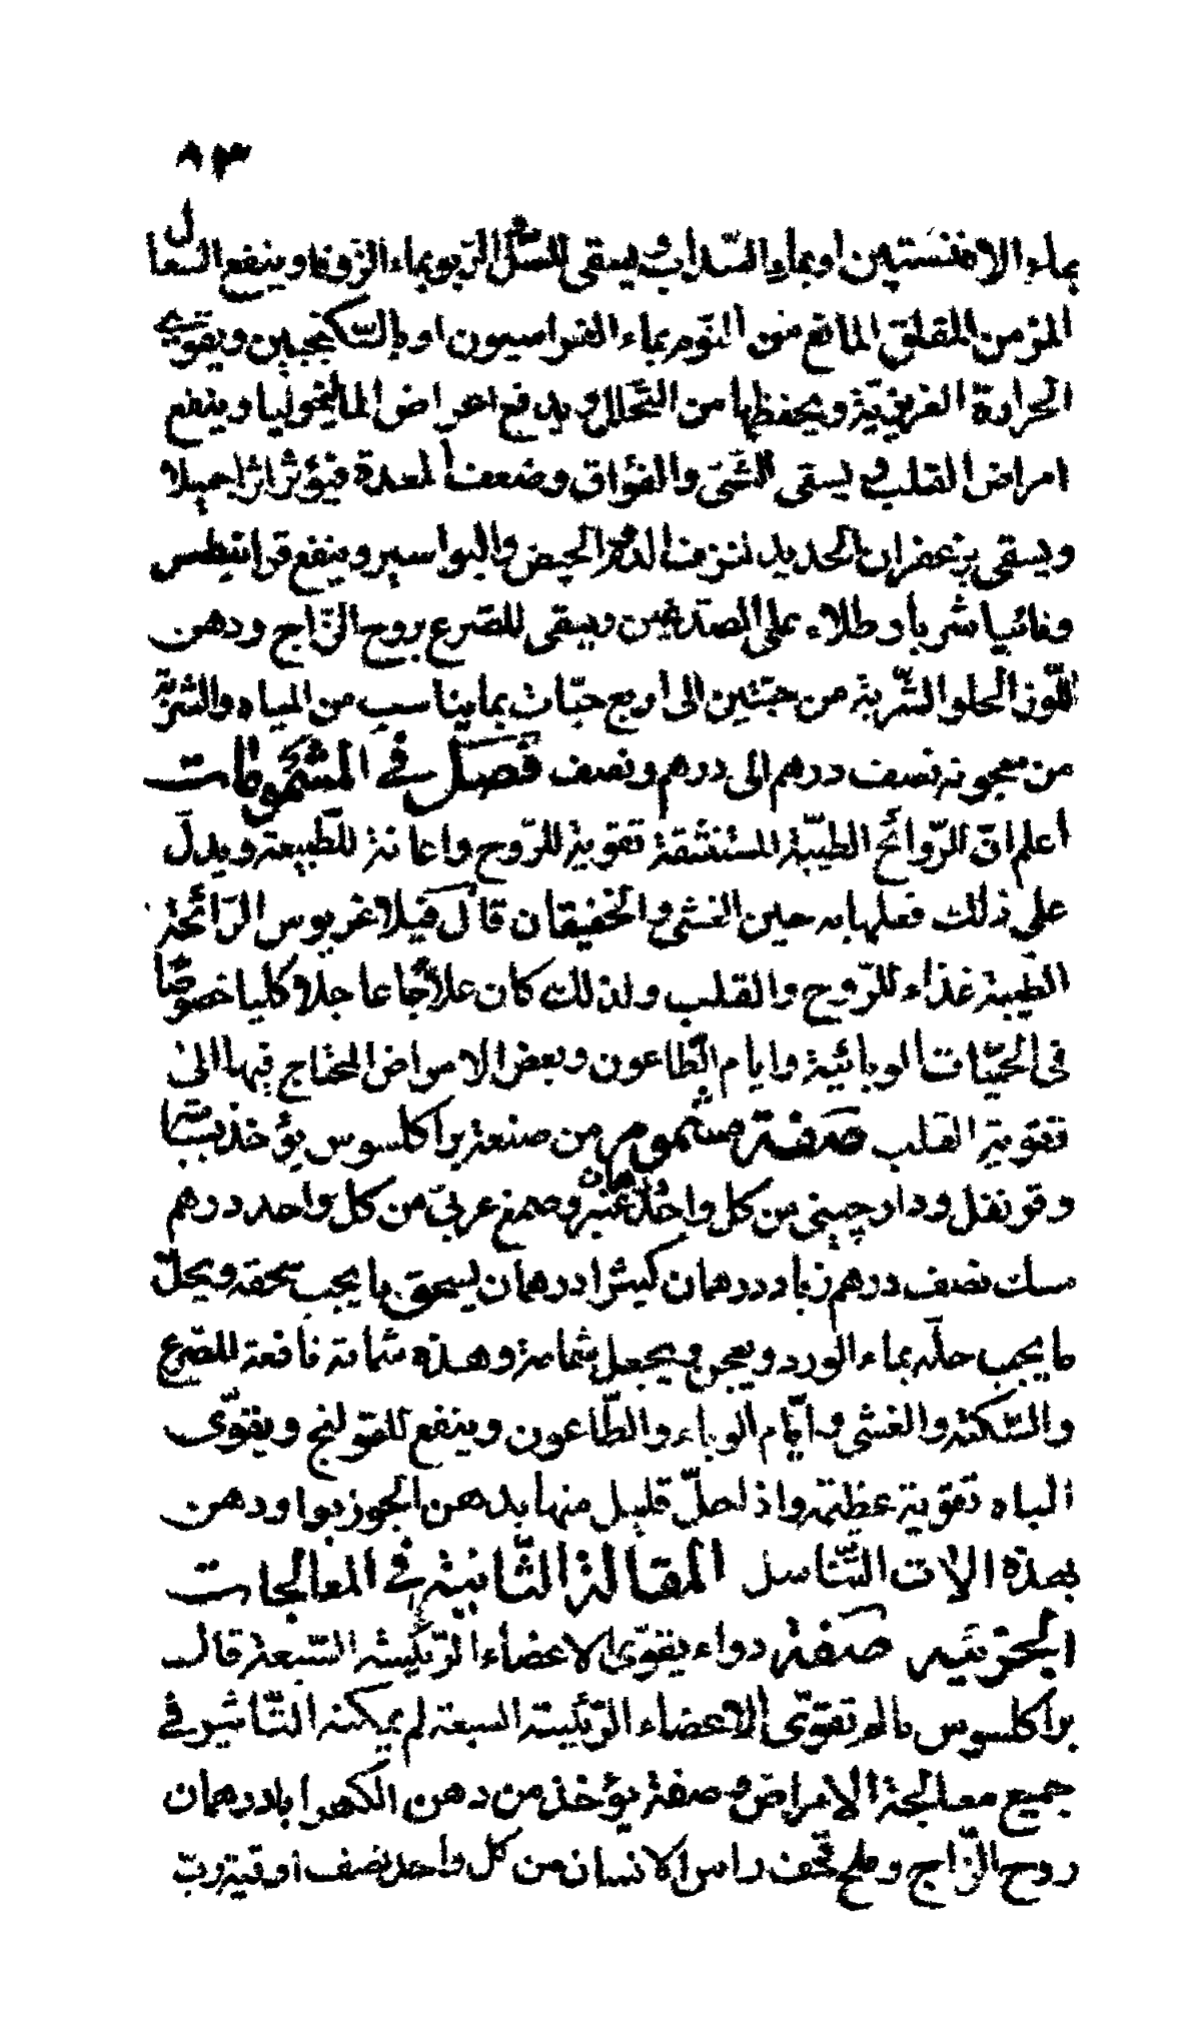 ٨٣
بماء الافسنتين او بماء السّداب و يسقى للسّل و الرّبو بماء الزّوفا و ينفع السّعال
المزمن المقلق المانع من النّوم بماء الفراسيون او بالسّكنجبين و يقوّى
الحرارة الغريزيّة و يحفظها من التّحلل و يدفع اعراض الماليخوليا و ينفع
امراض القلب و يسقى للغشى و الفؤاق و ضعف المعدة فيؤثر اثرا جميلا
و يسقى بزعفران الحديد لنزف الدّم و الحيض و البواسير و ينفع قرانيطس
و مانيا شربا و طلاء على الصّدغين و يسقى للصّرع بروح الزّاج و دهن
اللّوز الحلو الشّربة من حبّتين الى اربع حبّات بما يناسب من المياه و الشّربة
من معجونه نصف درهم الى درهم و نصف فصل فى المشمومات
اعلم انّ للرّوائح الطيّبة المستنشقة تقوية للرّوح و اعانة للطّبيعة و يدلّ
على ذلك فعلها به حين الغشى و الخفقان قال فيلاغريوس الرّائحة
الطّيبة غذاء للرّوح و القلب و لذلك كان علاجا عاجلا كليا خصوصا
فى الحمّيات الوبائية و ايام الطّاعون و بعض الامراض المحتاج فيها الى
تقوية القلب صفة مشموم من صنعة براكلسوس يؤخذ بسباسة
و قرنفل و دارچينى من كل واحد درهمان عنبر و صمغ عربىّ من كل واحد درهم
مسك نصف درهم زباد درهمان كثيرا درهمان يسحق ما يجب سحقه و يحلّ
ما يجب حلّه بماء الورد و يعجن و يجعل شمامة و هذه شمامة نافعة للصّرع
و السّكتة و الغشى و ايّام الوباء و الطّاعون و ينفع للقولنج و يقوّى
الباه تقوية عظيمة و اذا حلّ قليل منها بدهن الجوزبوا و دهن
بهذه الات التّناسل المقالة الثّانية فى المعالجات
الجزئيه صفة دواء يقوّى الاعضاء الرّئيسة السّبعة قال
براكلسوس ما لم تقوّى الاعضاء الرّئيسة السبعة لم يمكنه التّاثير فى
جميع معالجة الامراض و صفة يؤخذ من دهن الكهربا درهمان
روح الزّاج و ملح قحف راس الانسان من كل واحد نصف اوقية ربّ